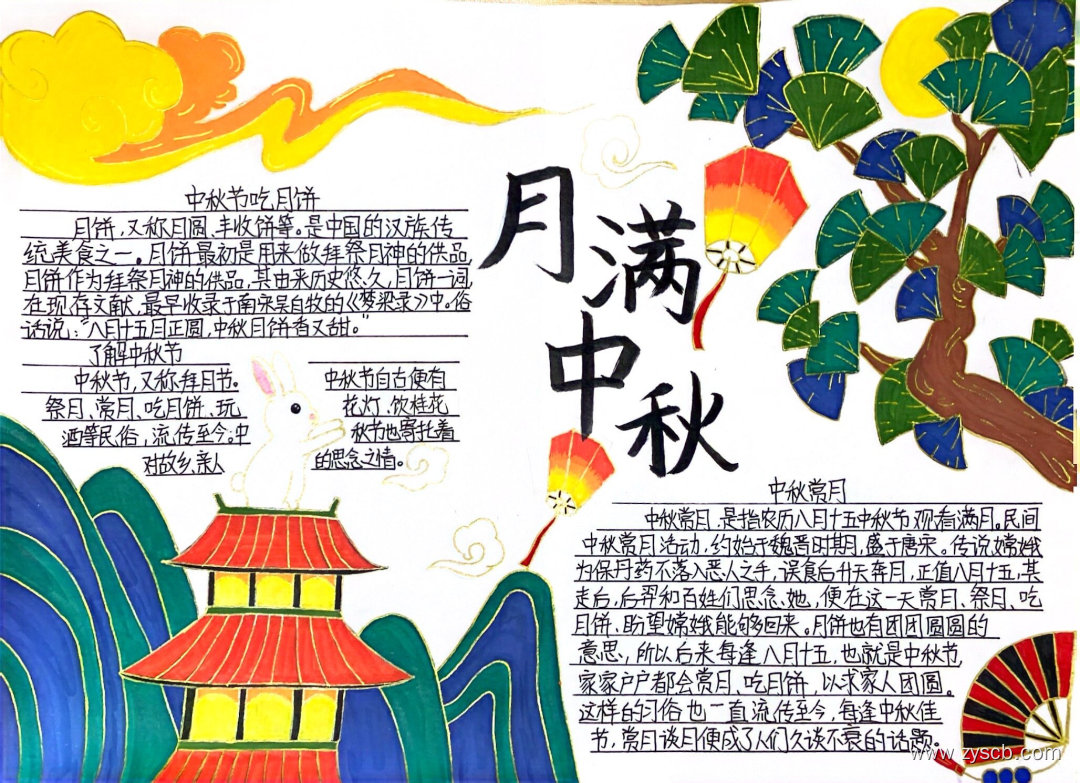 月满中秋
中秋节吃月饼
月饼，又称月圆、丰收饼等。是中国的汉族传
统美食之一。月饼最初是用来做拜祭月神的供品，
月饼作为拜祭月神的供品，其由来历史悠久，月饼一词，
在现存文献，最早收录于南宋吴自牧的《梦梁录》中。俗
话说：“八月十五月正圆，中秋月饼香又甜。”
了解中秋节
中秋节，又称拜月节。 中秋节自古便有
祭月、赏月、吃月饼、玩 花灯、饮桂花
酒等民俗，流传至今。中 秋节也寄托着
对故乡、亲人 的思念之情。
中秋赏月
中秋赏月，是指农历八月十五中秋节观看满月。民间
中秋赏月活动，约始于魏晋时期，盛于唐宋。传说，嫦娥
为保丹药不落入恶人之手，误食后升天奔月，正值八月十五，其
走后，后羿和百姓们思念她，便在这一天赏月、祭月、吃
月饼，盼望嫦娥能够回来。月饼也有团团圆圆的
意思，所以后来每逢八月十五，也就是中秋节，
家家户户都会赏月、吃月饼，以求家人团圆。
这样的习俗也一直流传至今，每逢中秋佳
节，赏月谈月便成了人们久谈不衰的话题。
www.zyscb.com